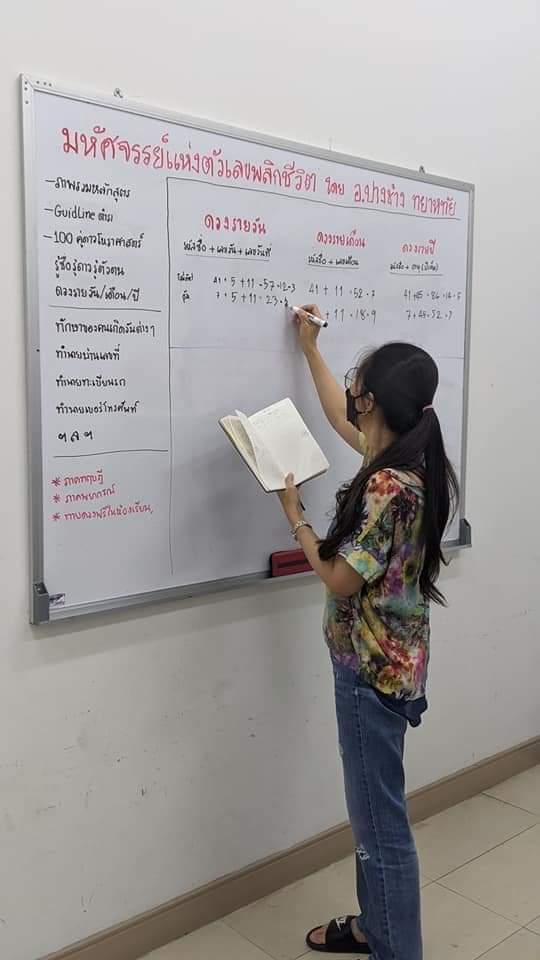 มหัศจรรย์แห่งตัวเลขพลิกชีวิต โดย อ.ปางช้าง ทยาหทัย
- ภาพรวมหลักสูตร
- GuidLine ตำรา
- 100 คู่ดาวโหราศาสตร์
รู้ชื่อรู้ดาวรู้ตัวตน
ดวงรายวัน/เดือน/ปี
ทักษาของคนเกิดวันต่างๆ
ทำนายบ้านเลขที่
ทำนายทะเบียนรถ
ทำนายเบอร์โทรศัพท์
ฯลฯ
* ภาคทฤษฎี
* ภาคพยากรณ์
* ทายดวงฟรีในห้องเรียน
ดวงรายวัน
หนังสือ + เลขวัน + เลขวันที่
41 + 5 + 11 = 57 = 12 = 3
7 + 5 + 11 = 23
ดวงรายเดือน
หนังสือ + เลขเดือน
41 + 11 = 52 = 7
+ 11 = 18 = 9
ดวงรายปี
41 + 45 = 86 = 14 = 5
7 + 45 = 52 = 7